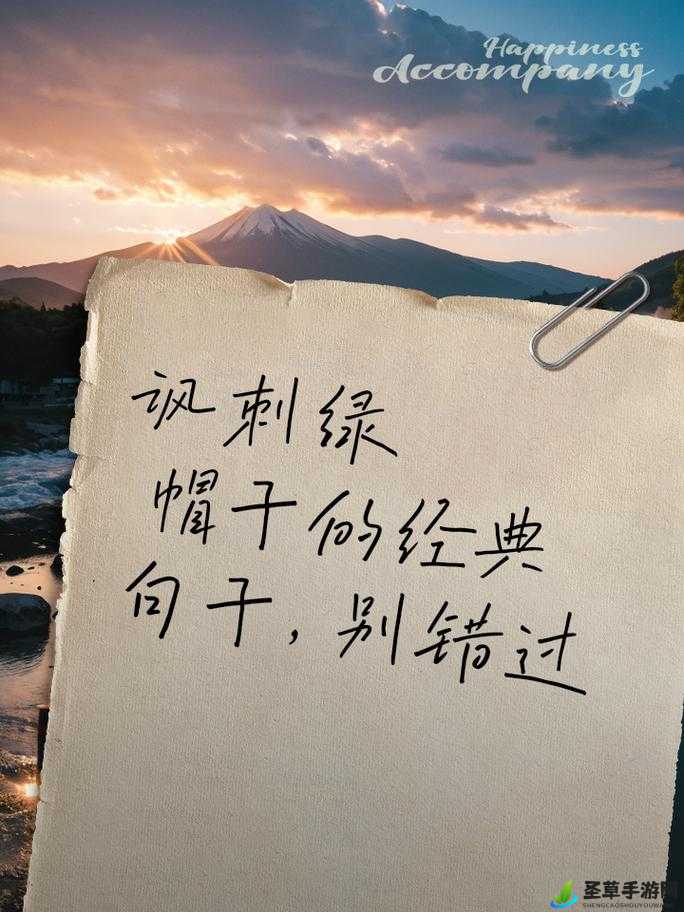 Happiness
Accompany
讽刺绿
帽子的经典
句子，别错过
圣草手游网
SHENGCAOSHOUYOUWANG